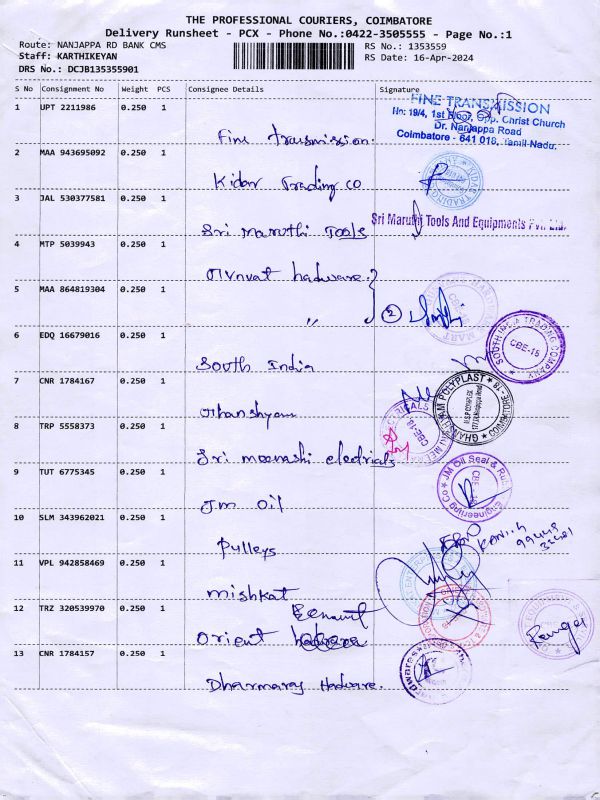 THE PROFESSIONAL COURIERS, COIMBATORE
Delivery Runsheet - PCX - Phone No.:0422-3505555 - Page No.:1
Route: NANJAPPA RD BANK CMS
RS No.: 1353559
Staff: KARTHIKEYAN
RS Date: 16-Apr-2024
DRS No.: DCJB135355901
S No Consignment No Weight PCS Consignee Details Signature
1 UPT 2211986 0.250 1
Fine Transmission.
FINE TRANSMISSION
No: 19/4, 1st Floor, Opp. Christ Church
Dr. Nanjappa Road
Coimbatore - 641 018, Tamil Nadu.
2 MAA 943695092 0.250 1
Kidav Trading co
3 JAL 530377581 0.250 1
Sri maruthi Tools
Sri Maruthi Tools And Equipments Pvt. Ltd.
4 MTP 5039943 0.250 1
hadware.
5 MAA 864819304 0.250 1
" 2
6 EDQ 16679016 0.250 1
South India
SOUTH INDIA TRADING COMPANY
CBE-15
7 CNR 1784167 0.250 1
Ghanshyam
GHANSHYAM POLYPLAST
8 TRP 5558373 0.250 1
Sri meenashi electricals
CBE-18
9 TUT 6775345 0.250 1
JM oil
JM Oil Seal & Rub
Engineering Co
10 SLM 343962021 0.250 1
Pulleys
11 VPL 942858469 0.250 1
mishkat
12 TRZ 320539970 0.250 1
Orient
13 CNR 1784157 0.250 1
Dharmaraj Hadware.